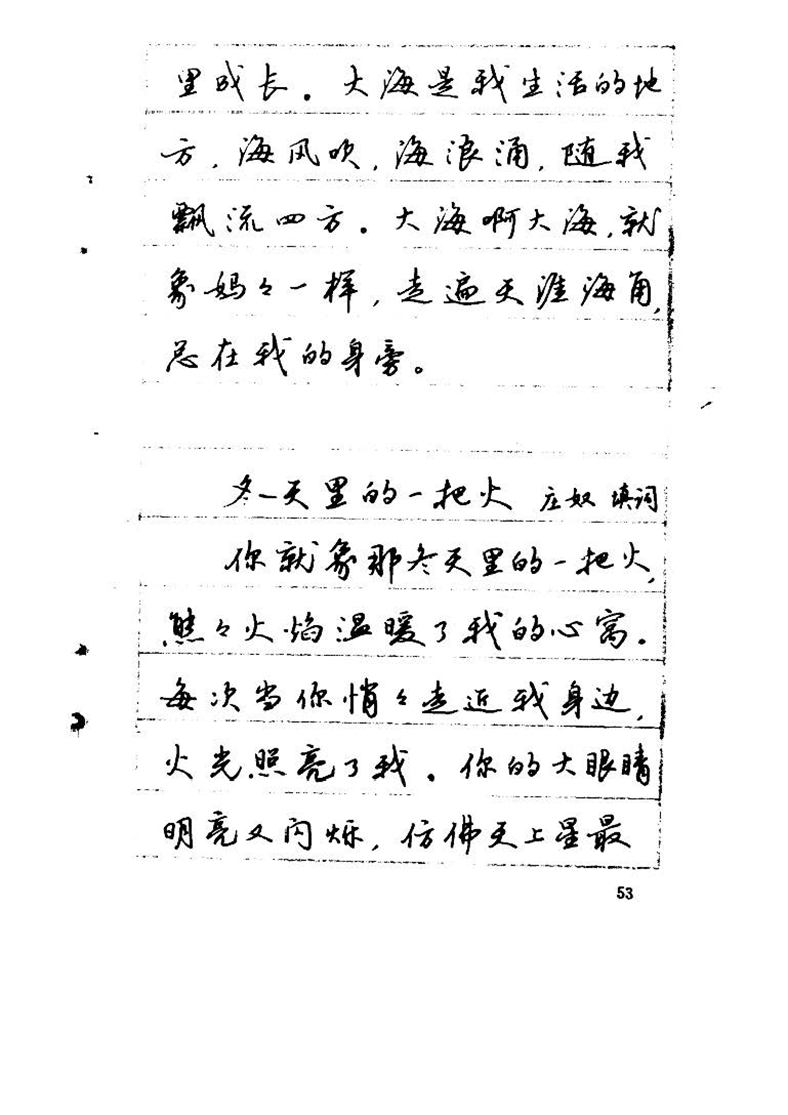 里成长。大海是我生活的地
方,海风吹,海浪涌,随我
飘流四方。大海啊大海,就
象妈々一样,走遍天涯海角,
总在我的身旁。
冬天里的一把火 庄奴 填词
你就象那冬天里的一把火,
熊々火焰温暖了我的心窝。
每次当你悄々走近我身边,
火光照亮了我。你的大眼睛
明亮又闪烁,仿佛天上星最
53